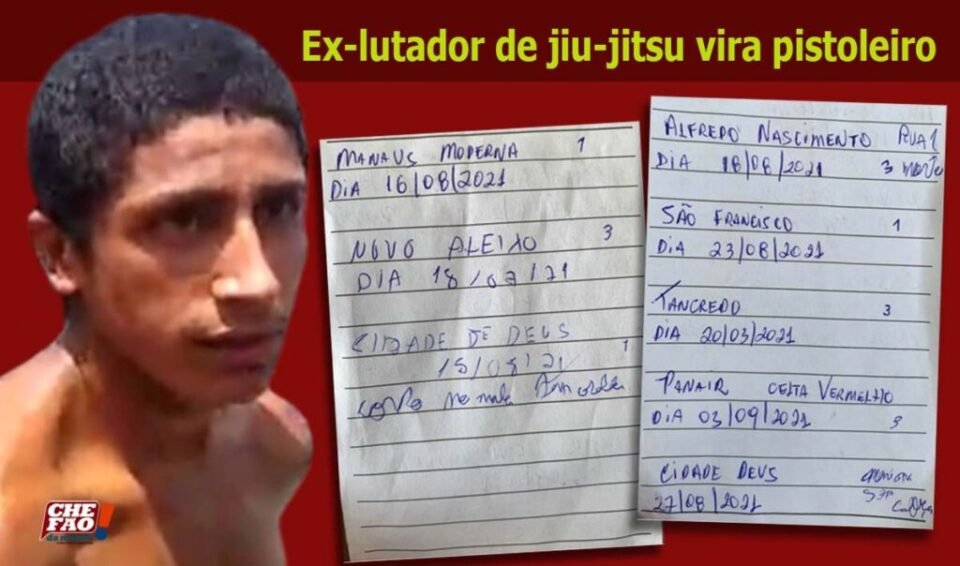 Ex-lutador de jiu-jitsu vira pistoleiro
MANAUS MODERNA 1
DIA 16/08/2021
NOVO ALEIXO 3
DIA 18/07/21
CIDADE DE DEUS
15/08/21 1
ALFREDO NASCIMENTO RUA 1
DIA 18/08/2021 3 MORTO
SÃO FRANCISCO 1
DIA 23/08/2021
TANCREDO 3
DIA 20/03/2021
PANAIR CELTA VERMELHO
DIA 03/09/2021
CIDADE DEUS
27/08/2021
CHE
FAO!